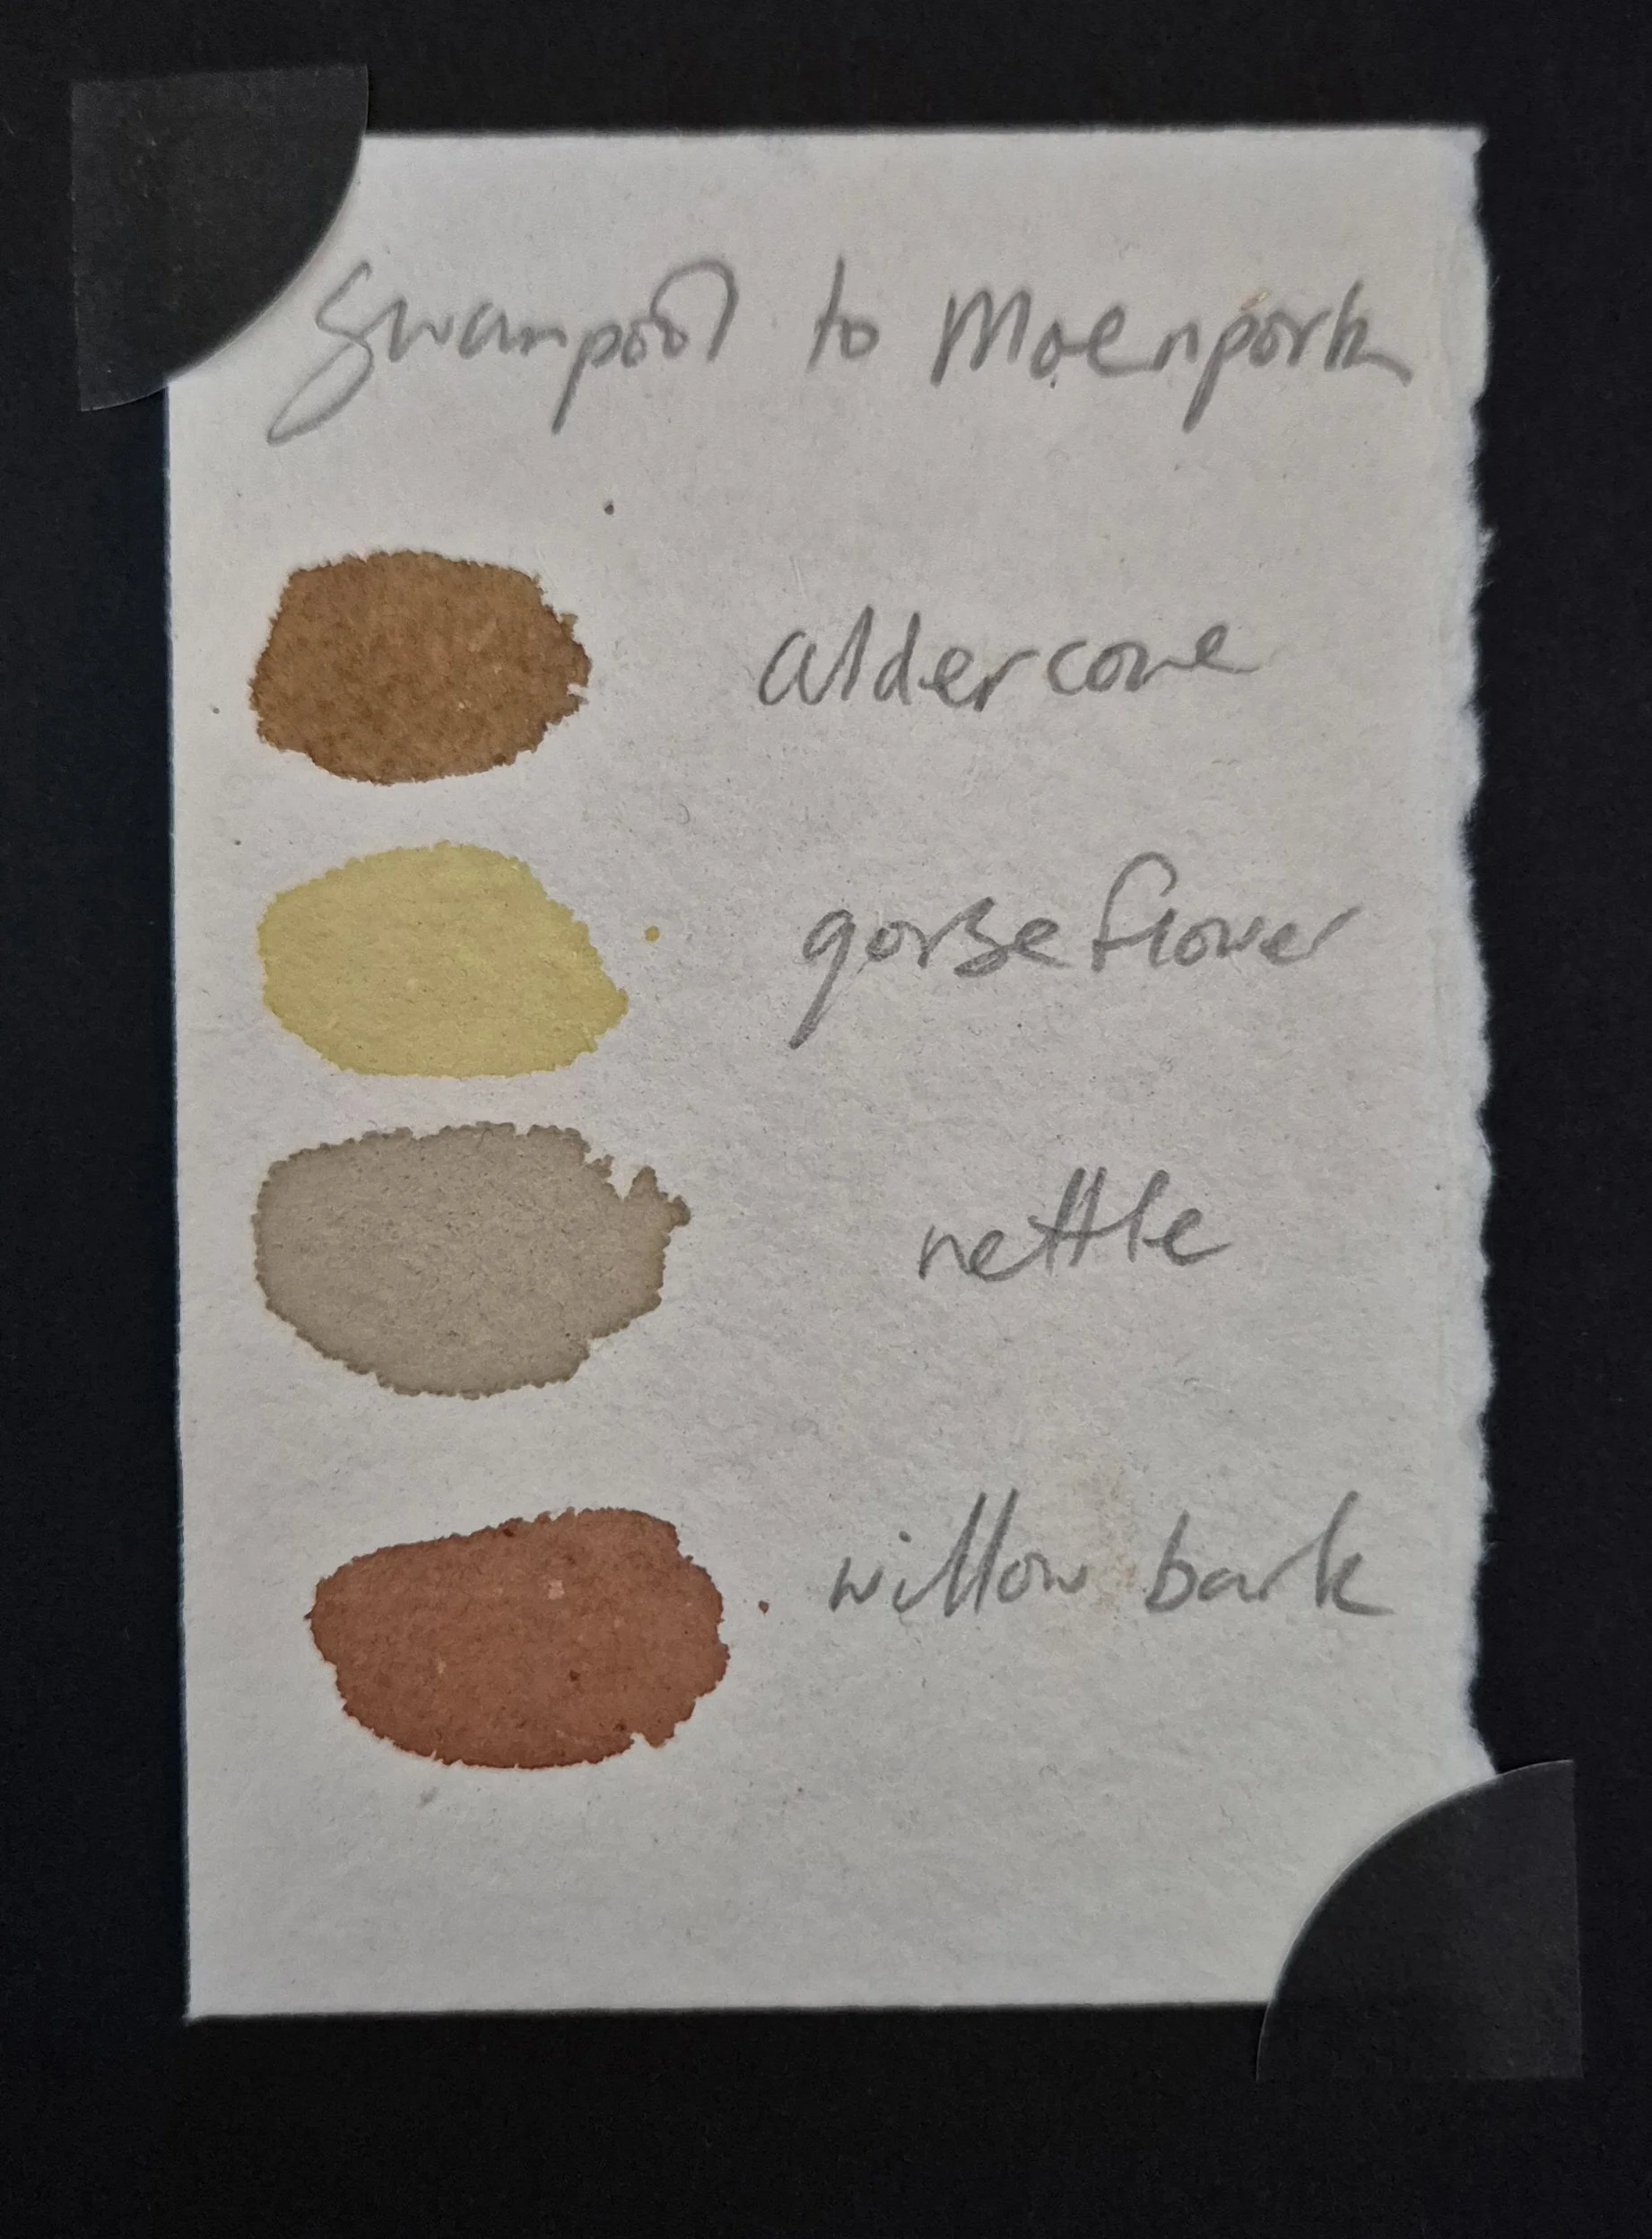 Swanpool to Maenporth
alder cone
gorse flower
nettle
willow bark